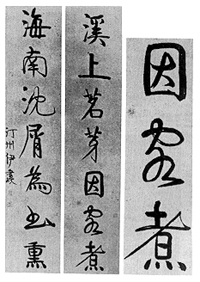 因客煮
溪上茗芽因客煮
海南沈屑為书熏
汀州伊